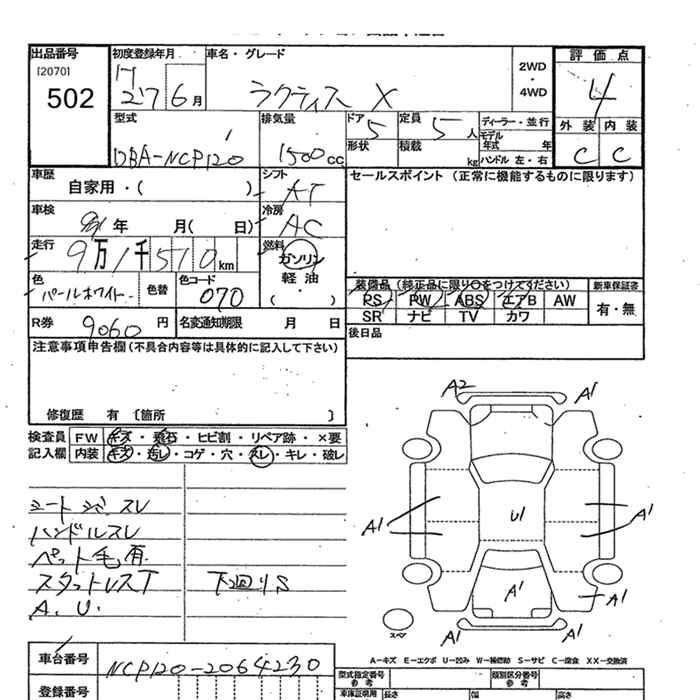 出品番号
[2070]
502
初度登録年月
H 27 6 月
車名・グレード
ラクティス X
2WD
・
4WD
評価点
4
外装 内装
C C
型式
DBA-NCP120
排気量
1500 CC
ドア
5
定員
5 人
形状
積載
kg
ディーラー・並行
モデル
年式 年
ハンドル 左・右
車歴
自家用・( )
シフト
AT
セールスポイント (正常に機能するものに限ります)
車検
年 月( 日)
冷房
AC
走行
9万1千510km
燃料
ガソリン
軽油
( ・ )
色
パールホワイト
色替
色コード
070
装備品 (純正品に限り○をつけてください)
新車保証書
PS PW ABS エアB AW
SR ナビ TV カワ
有・無
R券
9060 円
名変通知期限 月 日
後日品
注意事項申告欄 (不具合内容等は具体的に記入して下さい)
修復歴 有 〔箇所 〕
検査員
記入欄
FW キズ・飛石・ヒビ割・リペア跡・×要
内装 キズ・汚レ・コゲ・穴・スレ・キレ・破レ
シートシミ スレ
ハンドルスレ
ペット毛有
スタットレスT
下回りS
A.U.
A2
A1
A1
A1
U1
A1
A1
A1
A1
A1
スペア
A-キズ E-エクボ U-凹み W-補修跡 S-サビ C-腐食 XX-交換済
車台番号
NCP120-2064230
登録番号
型式指定番号
参考
類別区分番号
参考
車庫証明用
長さ
幅
高さ